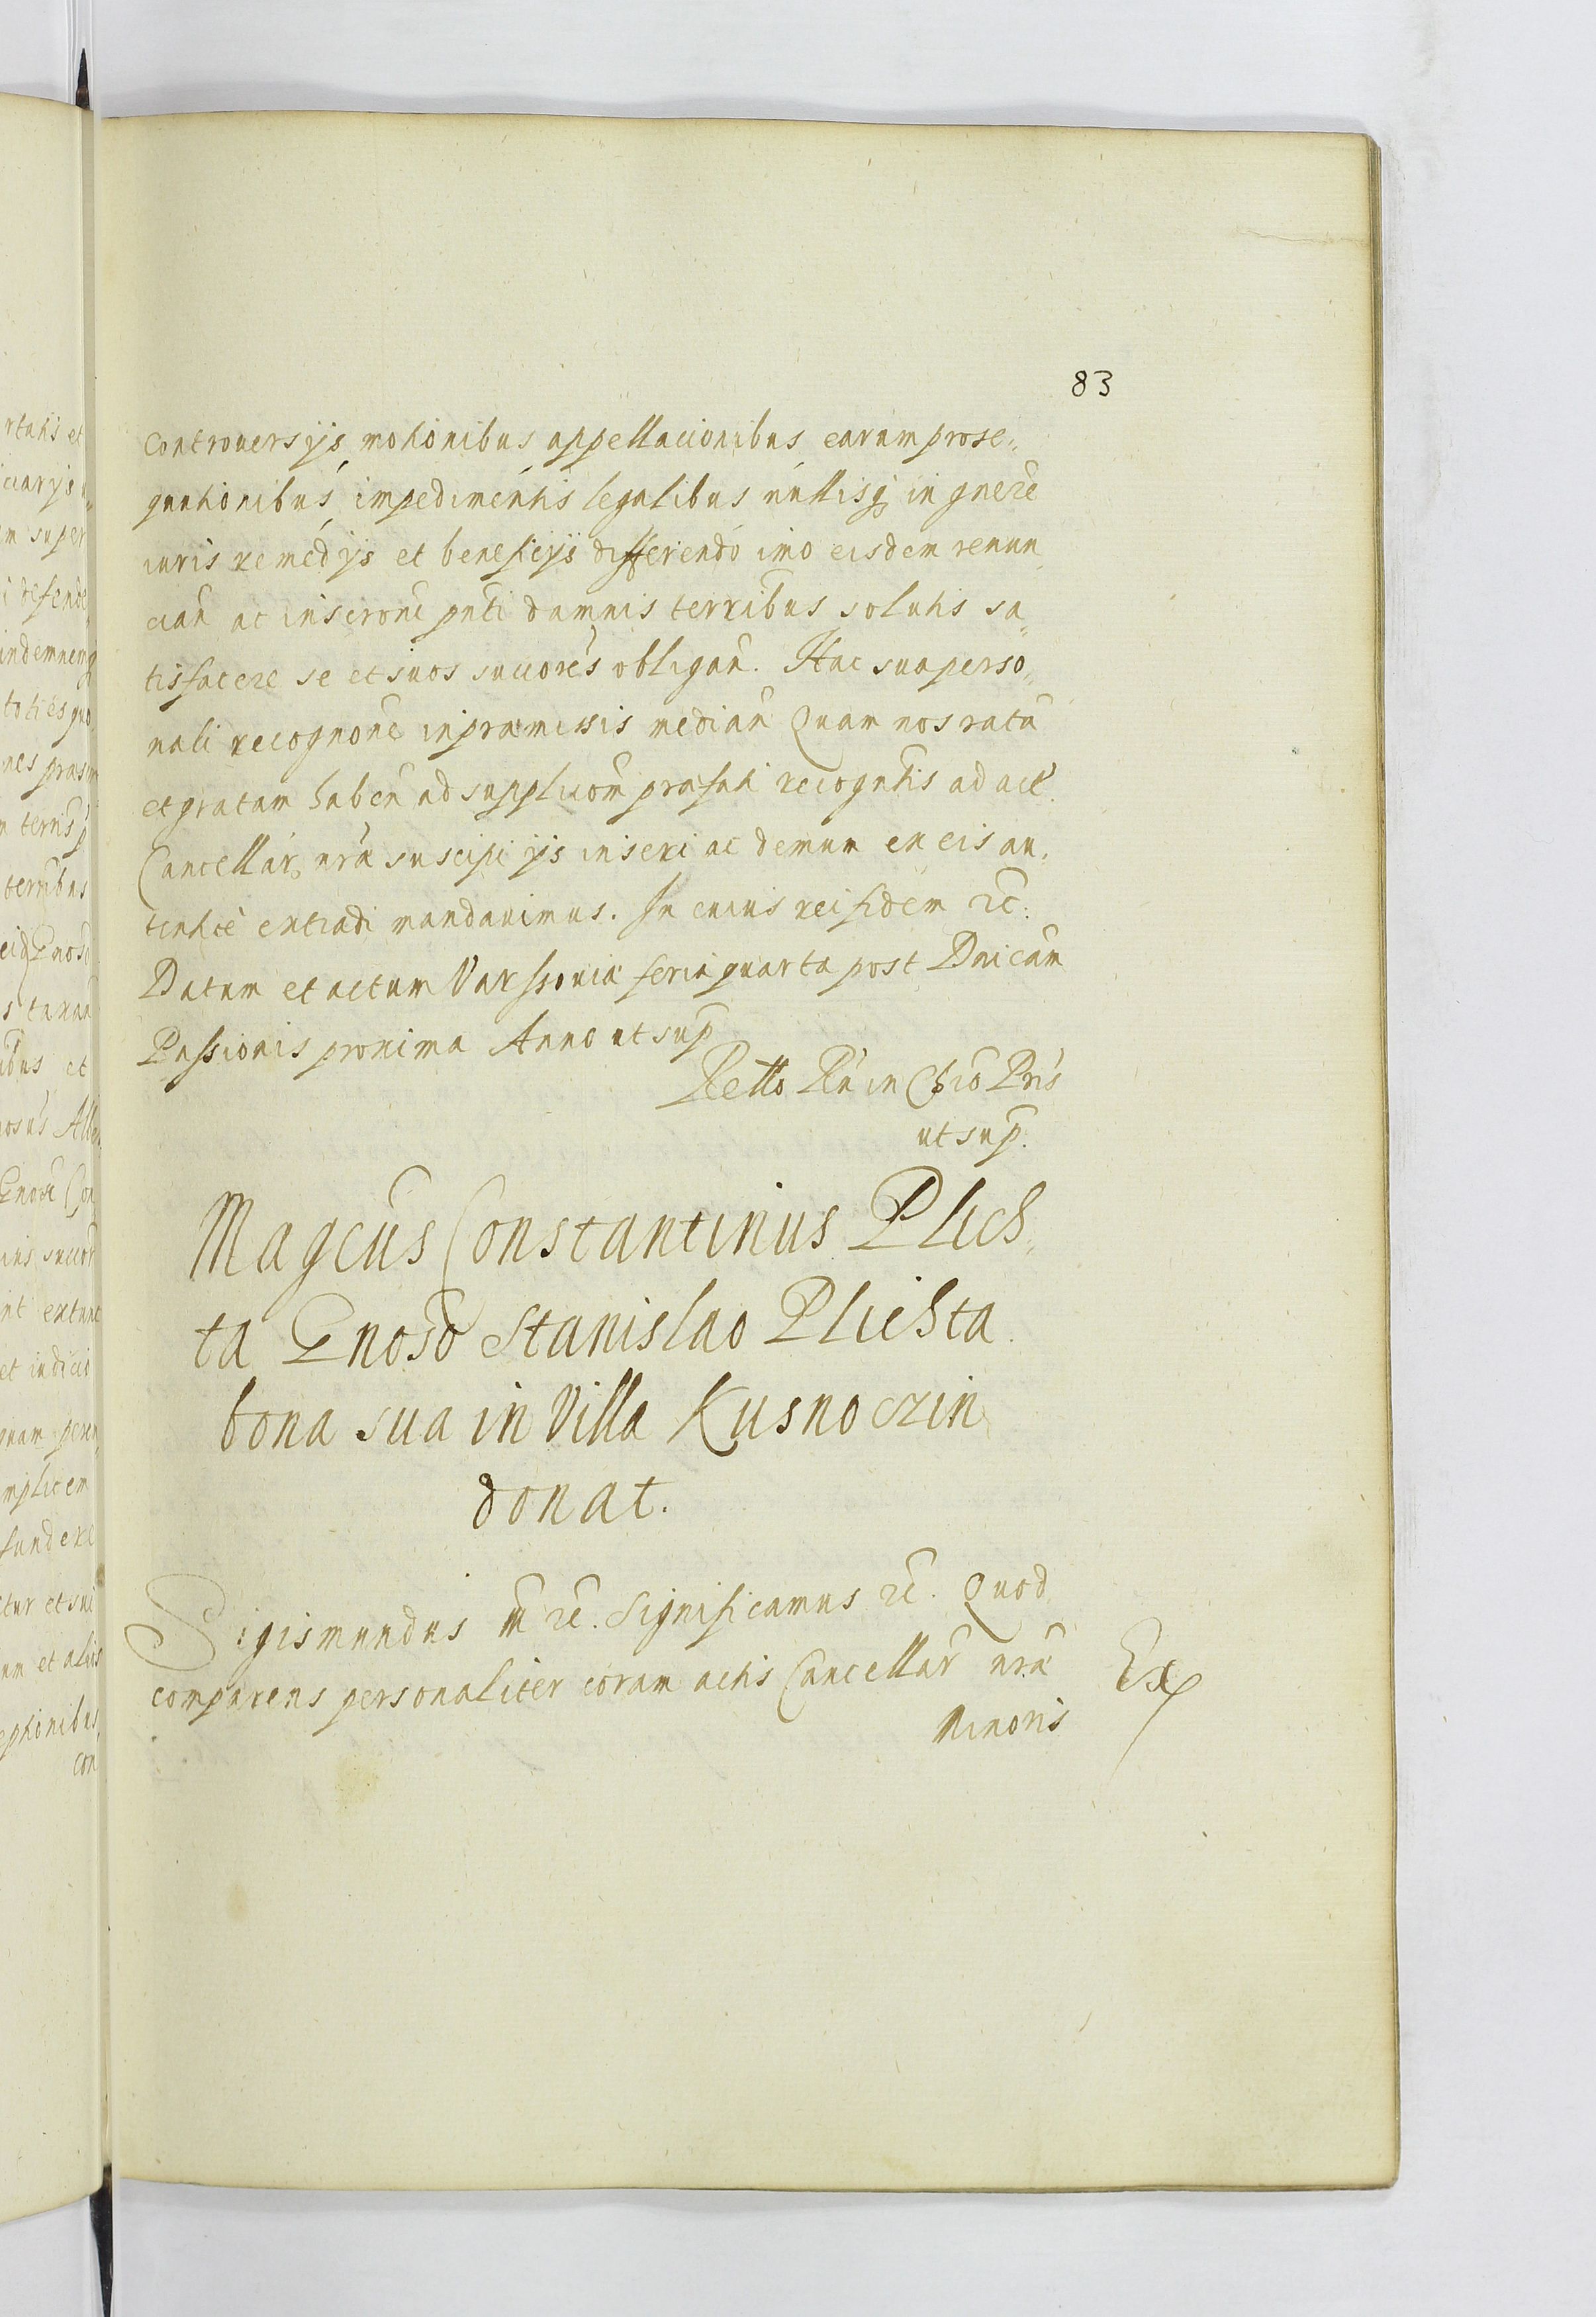 83
controuersijs motionibus appellacionibus earum prose„
quutionibus impedimentis legalibus nullisq in gnere
iuris remedijs et beneficijs differendo imo eisdem renun„
cian ac inscrone pnti damnis terribus solutis sa„
tisfacere se et suos succores obligan. Hac sua perso„
nali recognone in præmissis median Quam nos ratu
et gratam haben ad supplicom præfati recogntis ad act.
Cancellar nræ suscipi ijs inseri ac demum ex eis au„
tentice extradi mandauimus. In cuius rei fidem rc:
Datum et actum Varssouiæ feria quarta post Dnicam
Passionis proxima Anno ut sup
Retto Rn in Chio Pris
ut sup.
Magcus Constantinus Plich„
ta Gnoso Stanislao Plichta
bona sua in Villa Kusnoczin
donat.
Sigismundus m rc. Significamus rc. Quod
comparens personaliter coram actis Cancellar nræ
Minoris
Ex